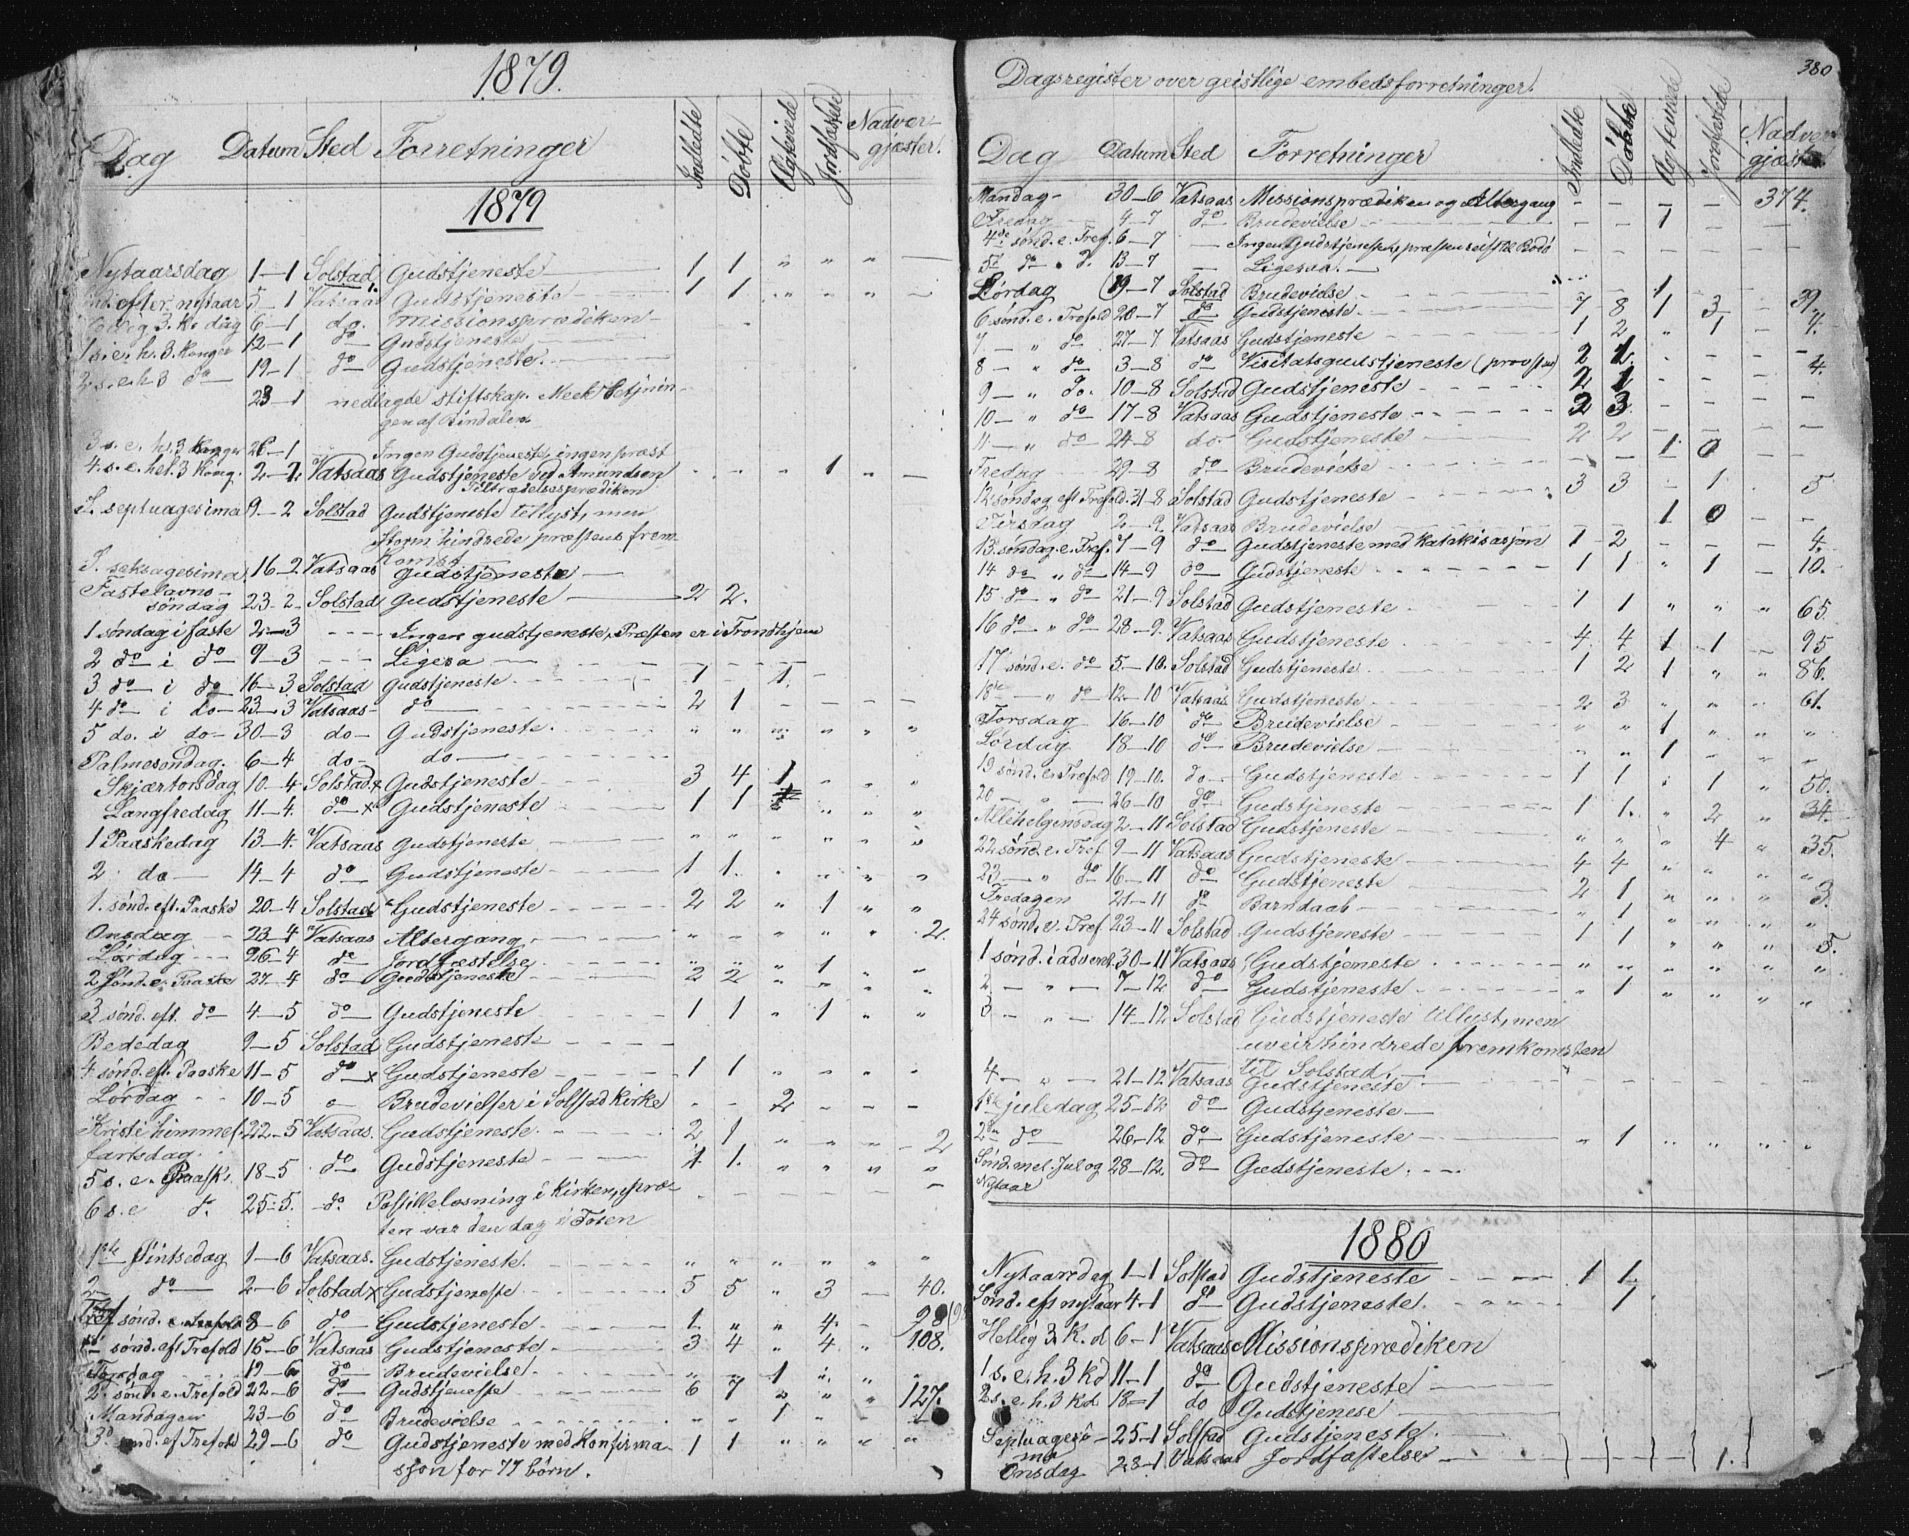 1879.
Dag Datum Sted Forretninger Indledte Døbte Ægteviede Jordfæstede Nadver-gjæster.
1879
Nytaarsdag 1–1 Solstad Gudstjeneste 1 1 „ „ „
efter nytaar 5–1 Vatsaas Gudstjeneste 1 1 „ „ „
3. K. dag 6–1 do. Missionsprædiken
1 s. e. h. 3. Konger 12–1 do Gudstjeneste
2 s. e. h 3 do 19–1 do Gudstjeneste.
23–1 nedlagde stiftskap. Meek
gen af Bindalen
3 s. e. h. 3 Konger 26–1 Ingen Gudstjeneste, ingen præst
4. s. e. hel. 3 Kong. 2–2 Vatsaas Gudstjeneste ved Amundsen 1
Tiltrædelsesprædiken
S. septuagesima 9–2 Solstad Gudstjeneste tillyst, men
Storm hindrede præstens frem-
komst
S. seksagesima 16–2 Vatsaas Gudstjeneste
Fastelavns-
søndag 23–2 Solstad Gudstjeneste 2 2.
1 søndag i faste 2–3 Ingen gudstjeneste, Præsten er i Trondhjem
2 do i do 9–3 Ligesa
3 do i do 16–3 Solstad Gudstjeneste 1 1.
4 do i do 23–3 Vatsaas do 2 1
5 do. i do 30–3 do Gudstjeneste.
Palmesøndag. 6–4 do do
Skjærtorsdag 10–4 Solstad x Gudstjeneste 3 4 1 „ „
Langfredag 11–4. do x Gudstjeneste 1 1
1 Paaskedag 13–4. Vatsaas Gudstjeneste
2. do 14–4 do Gudstjeneste 1 1.
1. sønd. eft. Paaske 20–4 Solstad Gudstjeneste 2 2 „ 1 „ „
Onsdag 23–4 Vatsaas Altergang 2.
Lørdag 26–4 do Jordfæstelse 1
2 Sønd. e. Paaske 27–4 do Gudstjeneste 2 2
3 sønd. eft. do 4–5 do Gudstjeneste 1 1 „ 1 „ „
Bededag 9–5 Solstad Gudstjeneste
4 sønd. eft. Paaske 11–5 do x Gudstjeneste 1 1
Lørdag 10–5 Brudevielser i Solstad Kirke 2
Kristi himmel- 22–5 Vatsaas. Gudstjeneste 2 1 2
fartsdag.
5 s. e. Paask. 18–5 do Gudstjeneste 1 1.
6 s. e do 25–5. do Postillelæsning i Kirken, præ-
ten var den dag i Fosen
1ste Pintsedag 1–6 Vatsaas. Gudstjeneste.
2 do 2–6 Solstad x Gudstjeneste 5 5 „ 3 40.
sønd. e. Trefold 8–6 do Gudstjeneste 1. „ „ 4. 98
sønd. eft Trefold 15–6 Vatsaas Gudstjeneste 3 4 „ 4 „ 108.
Torsdag 19–6 do Brudevielse. 1
2. sønd. e. Trefold 22–6 do Gudstjeneste 6 7 127.
Mandagen 23–6 do Brudevielse 1
3. sønd. ef Trefold 29–6 do Gudstjeneste med Konfirma- 1 1 „ „ „ „
sjon for 77 børn.
380
Dagsregister over geistlige embedsforretninger.
Dag Datum Sted Forretninger Indledte Døbte Ægteviede Jordfæstede Nadver-gjæster
Mandag 30–6 Vatsaas Missionsprædiken og Altergang 374.
Fredag 4–7 do Brudevielse 1
4de sønd. e. Tref. 6–7 Ingen Gudstjeneste, præsten reist til Bodø
5te do „ d. 13–7 Ligesaa.
Lørdag 19–7 Solstad Brudevielse 1
6 sønd. e. Trefold 20–7 do Gudstjeneste 7 8 1 3 39.
7 „ do 27–7 Vatsaas Gudstjeneste 1 2 „ 1 4.
8 „ do 3–8 do Visitatsgudstjeneste (provsten) 2 2. 4.
9 „ do. 10–8 Solstad Gudstjeneste 2 1
10 „ do 17–8 Vatsaas Gudstjeneste 2 3
11 „ do 24–8 do Gudstjeneste 2 2
Fredag 29–8 do Brudevielse 1 0
12 søndag eft Trefold. 31–8 Solstad Gudstjeneste 3 3 – 1 5
Tirsdag 2–9. Vatsaas Brudevielse 1 0
13. søndag e. Tref. 7–9 do Gudstjeneste med Katekisasjon 1 2 4.
14 do „ do 14–9 do Gudstjeneste 1 1 „ 1 10.
15 do „ do 21–9 Solstad Gudstjeneste 1 1 „ „ „ 65.
16 do „ do 28–9. Vatsaas Gudstjeneste 4 4 1 1 95
17 sønd. e. do 5–10. Solstad Gudstjeneste 1 2 1 „ „ 86.
18de „ do 12–10 Vatsaas Gudstjeneste 2 3 „ „ „ 61.
Torsdag 16–10 do Brudevielse „ „ 1 „ „ „
Lørdag 18–10 do Brudevielse „ „ 1 „ „ „
19 sønd. e. Trefold 19–10. do Gudstjeneste 1 1 „ 1 „ 50.
20 „ 26–10 do Gudstjeneste 1 1. „ 2 „ 34.
Allehelgensdag 2–11 Solstad Gudstjeneste „ „ „ 4 „ 35.
22 sønd. e. Tref 9–11 Vatsaas Gudstjeneste 4 4 „ „ „ „
23 „ do 16–11 do Gudstjeneste 2 1 „ „ „ 3.
Fredagen 21–11 do Barndaab „ 1
24 sønd. e. Tref 23–11 Solstad Gudstjeneste 1 1 „ „ „ 5.
1 sønd. i advent. 30–11 Vatsaas Gudstjeneste
2 „ 7–12 do Gudstjeneste „ 1 „ „ „ „
3 „ 14–12 Solstad Gudstjeneste tillyst, men
uveir hindrede fremkomsten
til Solstad.
4 „ 21–12 Vatsaas Gudstjeneste.
1ste juledag 25–12 do Gudstjeneste
2den do 26–12 do. Gudstjeneste „ 1
Sønd. mel. Jul og 28–12. do Gudstjeneste.
Nytaar
1880
Nytaarsdag 1–1 Solstad Gudstjeneste 1 1
Sønd. eft nytaar 4–1 do Gudstjeneste. 1
Hellig 3. K. d 6–1 Vatsaas Missionsprædiken
1 s. e. h. 3 kd 11–1 do Gudstjeneste
2 s. e. h. 3 kd. 18–1 do Gudstjenese
Septuagesi- 25–1 Solstad Gudstjeneste.
ma
Onsdag 28–1 Vatsaas Jordfæstelse 1.